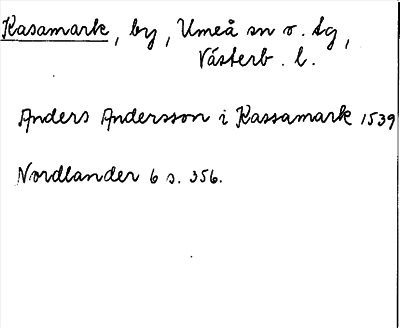 Kasamark, by, Umeå sn o. tg,
Västerb. l.
Anders Andersson i Kassamark 1539
Nordlander 6 s. 356.